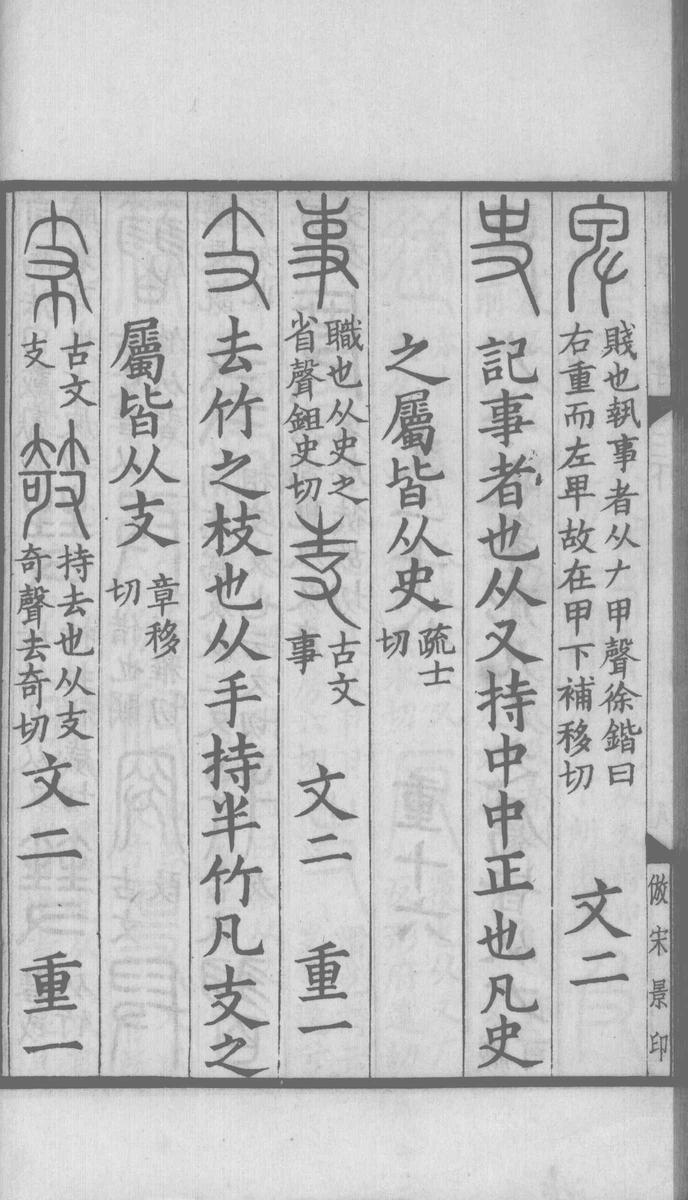 卑 賤也執事者从𠂇甲聲徐鍇曰
右重而左卑故在甲下補移切
文二
史 記事者也从又持中中正也凡史
之屬皆从史 疏士
切
事 職也从史之
省聲鉏史切
𠭏 古文
事
文二 重一
支 去竹之枝也从手持半竹凡支之
屬皆从支 章移
切
𠦙 古文
支
攲 持去也从支
奇聲去奇切
文二 重一
倣宋景印